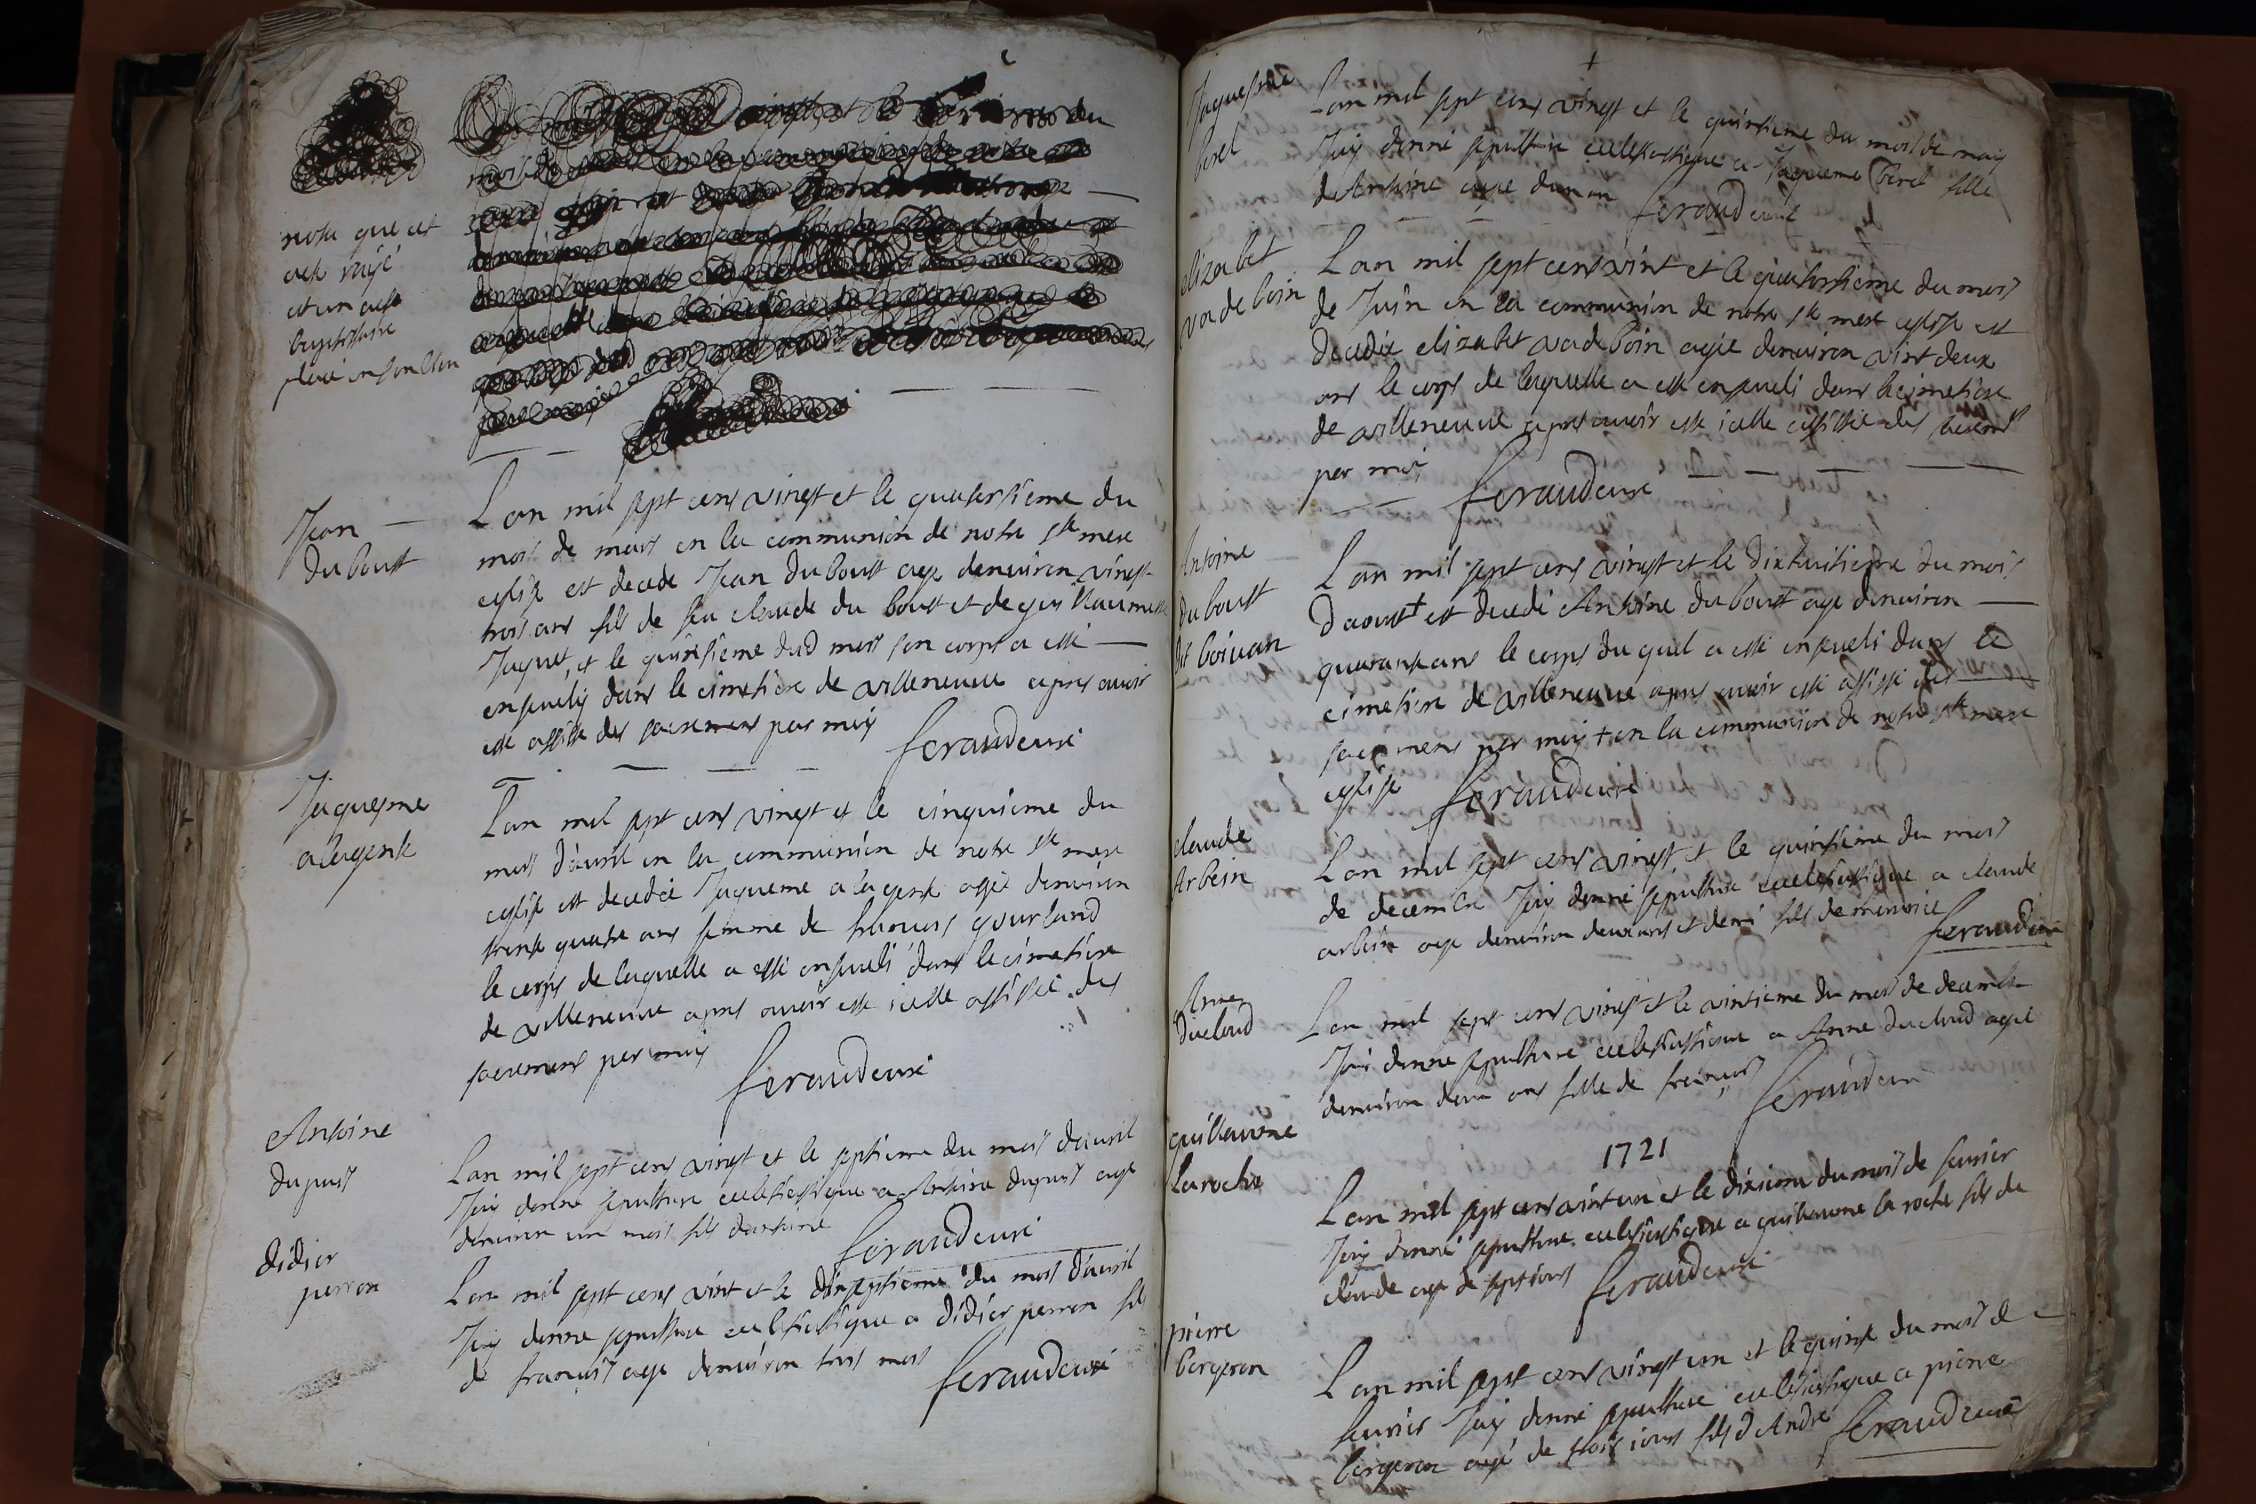 nota que cet
acte rayé
et un acte
baptistaire
placé en son lieu
vingt et le
Jean
Du boust
L an mil sept cens vingt et le quatorsieme du
mois de mars en la communion de notre ste mere
eglise est decede Jean Du boust age denviron vingt
trois ans fils de feu claude du boust et de
Juquet, et le quinsieme dud mois son corps a esté
ensevely dans le cimetiere de villeneuve apres avoir
esté assisté des sacremens par moy
feraud curé
Jaquesme
alagente
L an mil sept cens vingt et le cinquieme du
mois d'avril en la communion de notre ste mere
eglise est decedée Jaqueme alagente agée denviron
trente quatre ans femme de francois gourland
le corps de laquelle a esté enseveli dans le cimetiere
de villeneuve apres avoir esté icelle assistée des
sacremens par moy
feraud curé
Antoine
dupuis
L an mil sept cens vingt et le septieme du mois d'avril
J'ay donné sepulture eclesiastique a Antoine dupuis agé
denviron un mois fils dantoine
feraud curé
didier
perron
L an mil sept cens vint et le dixseptieme du mois d'avril
J'ay donné sepulture eclesiastique a didier perron fils
de francois agé denviron trois mois
feraud curé
Jaquesme
borel
L an mil sept cens vingt et le quinsieme du mois de may
J'ay donné sepulture eclesiastique a Jaqueme borel fille
de Antoine agée dun an feraud curé
elizabet
vadeboin
L an mil sept cens vint et le quatorsieme du mois
de Juin en la communion de notre ste mere eglise est
decedée elizabet vadeboin agée denviron vint deux
ans le corps de laquelle a esté enseveli dans le cimetiere
de villeneuve apres avoir esté icelle assistée des sacremens
par moi
feraud curé
Antoine
du boust
dit boivan
L an mil sept cens vingt et le dixhuitieme du mois
d'aoust + est decedé Antoine du boust agé denviron
quarante ans le corps du quel a esté enseveli dans le
cimetiere de villeneuve apres avoir esté assisté des
sacremens par moy + en la communion de notre ste mere
eglise feraud curé
claude
Arbein
L an mil sept cens vingt et le quinsieme du mois
de decembre J'ay donné sepulture eclesiastique a claude
arbein agé denviron deux ans et demi fils de
feraud curé
Anne
ducloud
L an mil sept cens vingt et le vintieme du mois de decembre
J'ai donné sepulture eclesiastique a Anne ducloud agée
denviron deux ans fille de francois
feraud curé
1721
guillaume
la roche
L an mil sept cens vint un et le dixieme du mois de fevrier
J'ay donné sepulture eclesiastique a guillaume la roche fils de
claude agé de sept jours feraud curé
pierre
bergeron
L an mil sept cens vingt un et le quinze du mois de
fevrier J'ay donné sepulture eclesiastique a pierre
bergeron agé de trois jours fils d André feraud curé